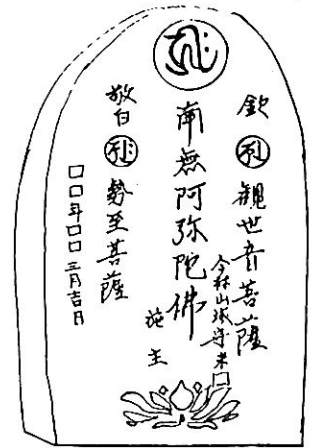 欽 観世音菩薩
今林山城守
南無阿弥陀佛
施主
敬白 勢至菩薩
□□年□□三月吉日